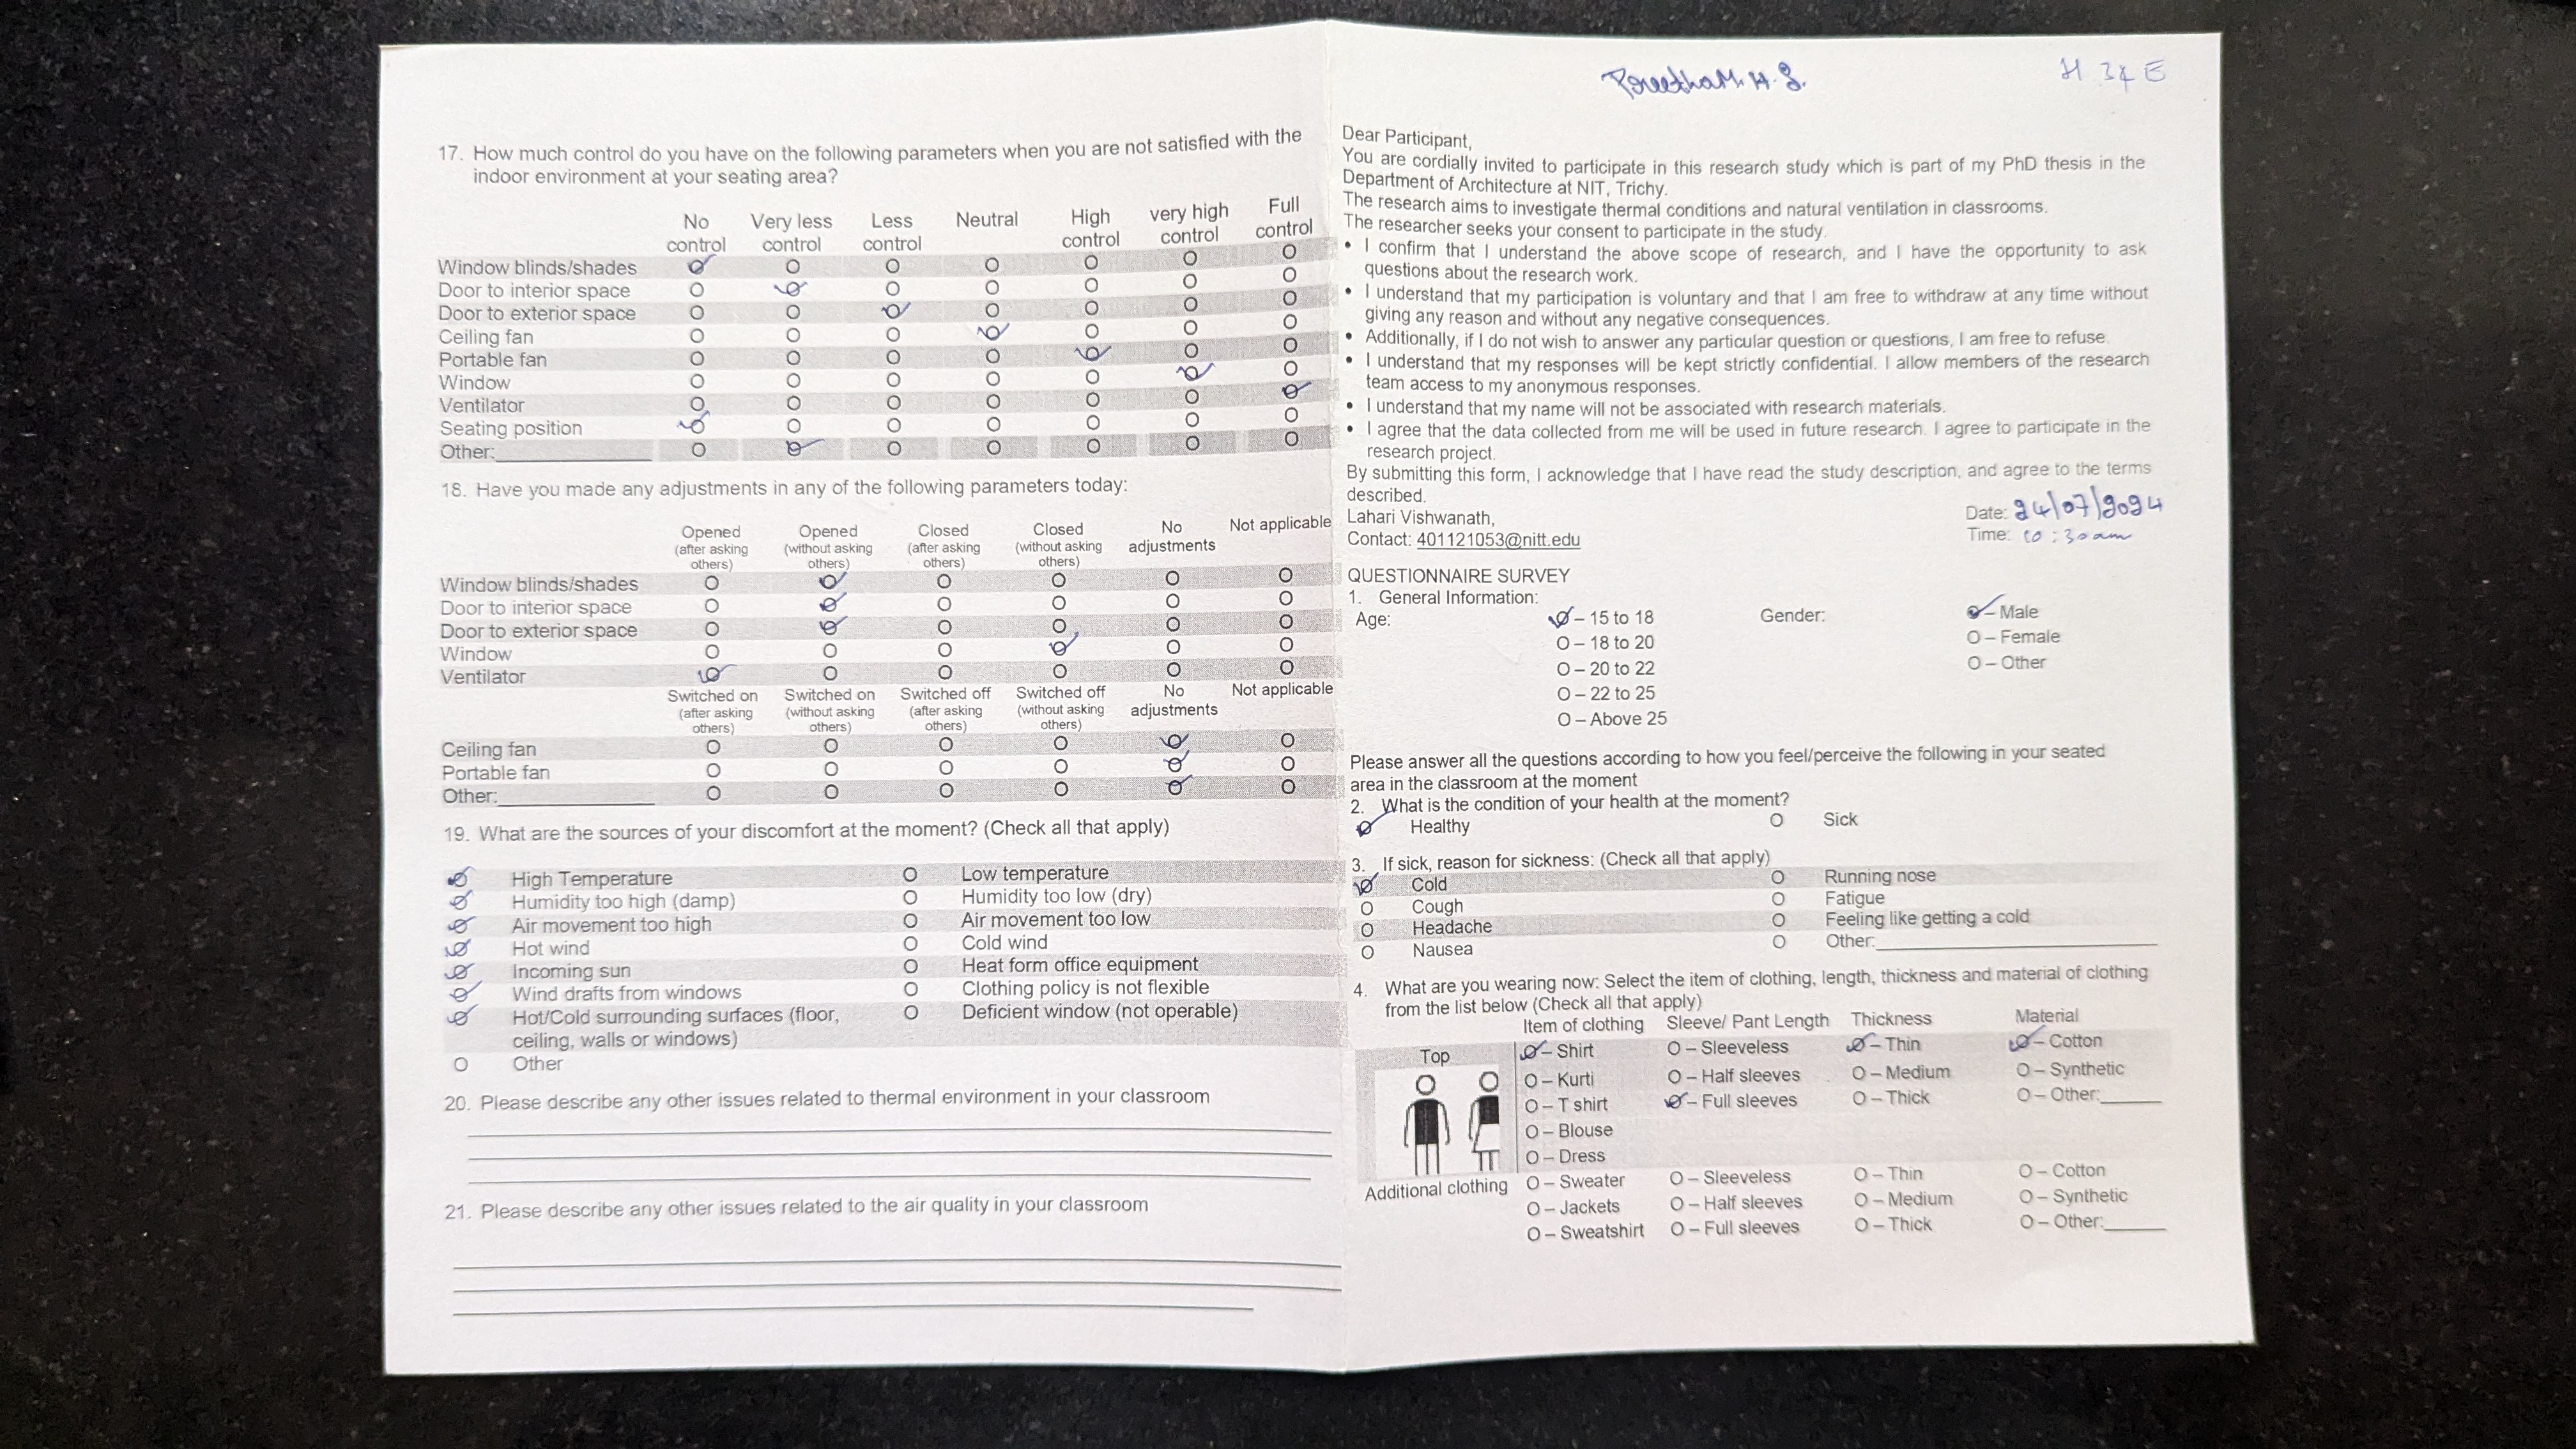 17. How much control do you have on the following parameters when you are not satisfied with the
indoor environment at your seating area?
No control Very less control Less control Neutral High control very high control Full control
Window blinds/shades O O O O O O O
Door to interior space O O O O O O O
Door to exterior space O O O O O O O
Ceiling fan O O O O O O O
Portable fan O O O O O O O
Window O O O O O O O
Ventilator O O O O O O O
Seating position O O O O O O O
Other: O O O O O O O
18. Have you made any adjustments in any of the following parameters today:
Opened (after asking others) Opened (without asking others) Closed (after asking others) Closed (without asking others) No adjustments Not applicable
Window blinds/shades O O O O O O
Door to interior space O O O O O O
Door to exterior space O O O O O O
Window O O O O O O
Ventilator O O O O O O
Switched on (after asking others) Switched on (without asking others) Switched off (after asking others) Switched off (without asking others) No adjustments Not applicable
Ceiling fan O O O O O O
Portable fan O O O O O O
Other: O O O O O O
19. What are the sources of your discomfort at the moment? (Check all that apply)
O High Temperature O Low temperature
O Humidity too high (damp) O Humidity too low (dry)
O Air movement too high O Air movement too low
O Hot wind O Cold wind
O Incoming sun O Heat form office equipment
O Wind drafts from windows O Clothing policy is not flexible
O Hot/Cold surrounding surfaces (floor, O Deficient window (not operable)
ceiling, walls or windows)
O Other
20. Please describe any other issues related to thermal environment in your classroom
21. Please describe any other issues related to the air quality in your classroom
H 34 E
Dear Participant,
You are cordially invited to participate in this research study which is part of my PhD thesis in the
Department of Architecture at NIT, Trichy.
The research aims to investigate thermal conditions and natural ventilation in classrooms.
The researcher seeks your consent to participate in the study.
• I confirm that I understand the above scope of research, and I have the opportunity to ask
questions about the research work.
• I understand that my participation is voluntary and that I am free to withdraw at any time without
giving any reason and without any negative consequences.
• Additionally, if I do not wish to answer any particular question or questions, I am free to refuse.
• I understand that my responses will be kept strictly confidential. I allow members of the research
team access to my anonymous responses.
• I understand that my name will not be associated with research materials.
• I agree that the data collected from me will be used in future research. I agree to participate in the
research project.
By submitting this form, I acknowledge that I have read the study description, and agree to the terms
described.
Lahari Vishwanath,
Contact: 401121053@nitt.edu
Date: 24/07/2024
Time: 10:30am
QUESTIONNAIRE SURVEY
1. General Information:
Age: O – 15 to 18 Gender: O – Male
O – 18 to 20 O – Female
O – 20 to 22 O – Other
O – 22 to 25
O – Above 25
Please answer all the questions according to how you feel/perceive the following in your seated
area in the classroom at the moment
2. What is the condition of your health at the moment?
O Healthy O Sick
3. If sick, reason for sickness: (Check all that apply)
O Cold O Running nose
O Cough O Fatigue
O Headache O Feeling like getting a cold
O Nausea O Other:
4. What are you wearing now: Select the item of clothing, length, thickness and material of clothing
from the list below (Check all that apply)
Item of clothing Sleeve/ Pant Length Thickness Material
Top O – Shirt O – Sleeveless O – Thin O – Cotton
O – Kurti O – Half sleeves O – Medium O – Synthetic
O – T shirt O – Full sleeves O – Thick O – Other:
O – Blouse
O – Dress
Additional clothing O – Sweater O – Sleeveless O – Thin O – Cotton
O – Jackets O – Half sleeves O – Medium O – Synthetic
O – Sweatshirt O – Full sleeves O – Thick O – Other: